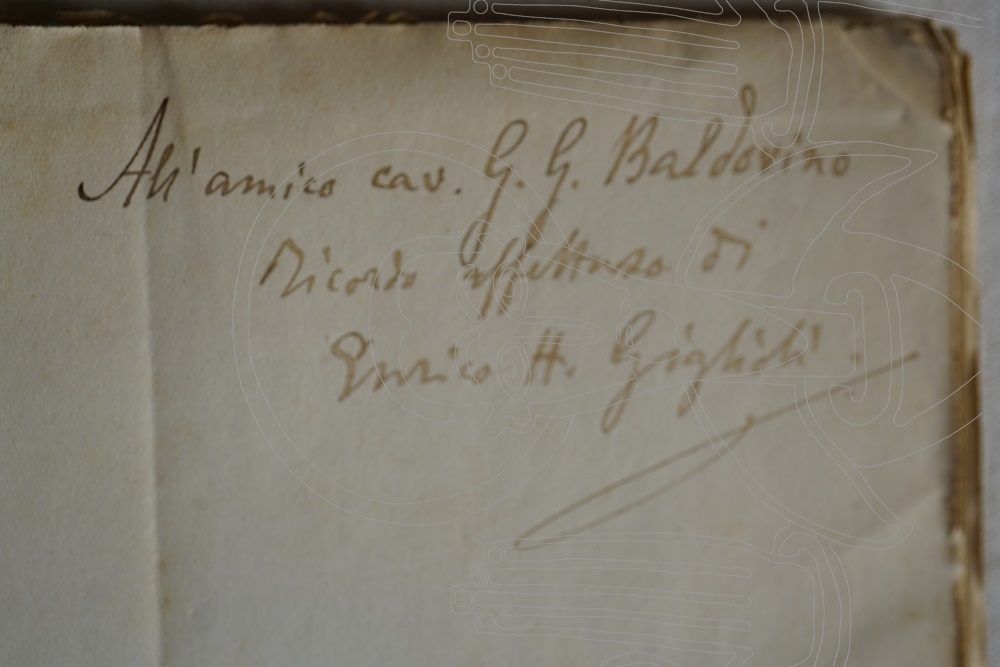 All'amico cav. G. G. Baldovino
Ricordo affettuoso di
Enrico H. Giglioli